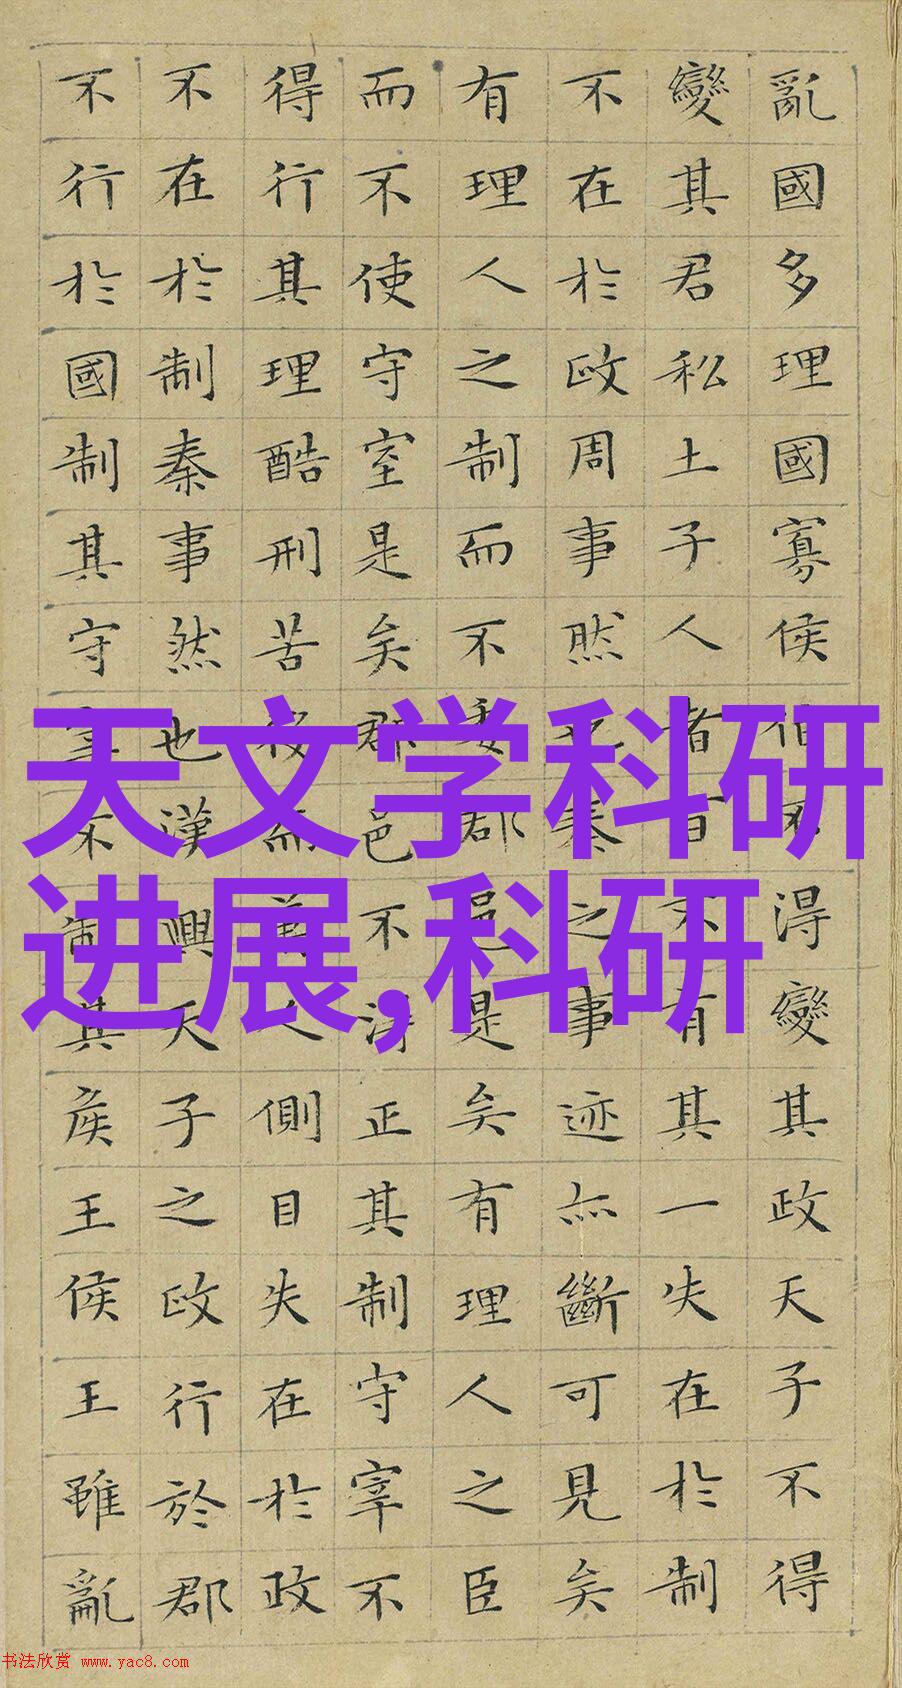 亂國多理國寡侯伯不得變其政天子不得
變其君私土子人者百不有其一失在於制
不在於政周事然也秦之事迹亦斷可見矣
有理人之制而不委郡邑是矣有理人之臣
而不使守宰是矣郡邑不得正其制守宰不
得行其理酷刑苦役而萬人側目失在於政
不在於制秦事然也漢興天子之政行於郡
不行於國制其守宰不制其侯王侯王雖亂
天文学科研
进展,科研
书法欣赏 www.yac8.com